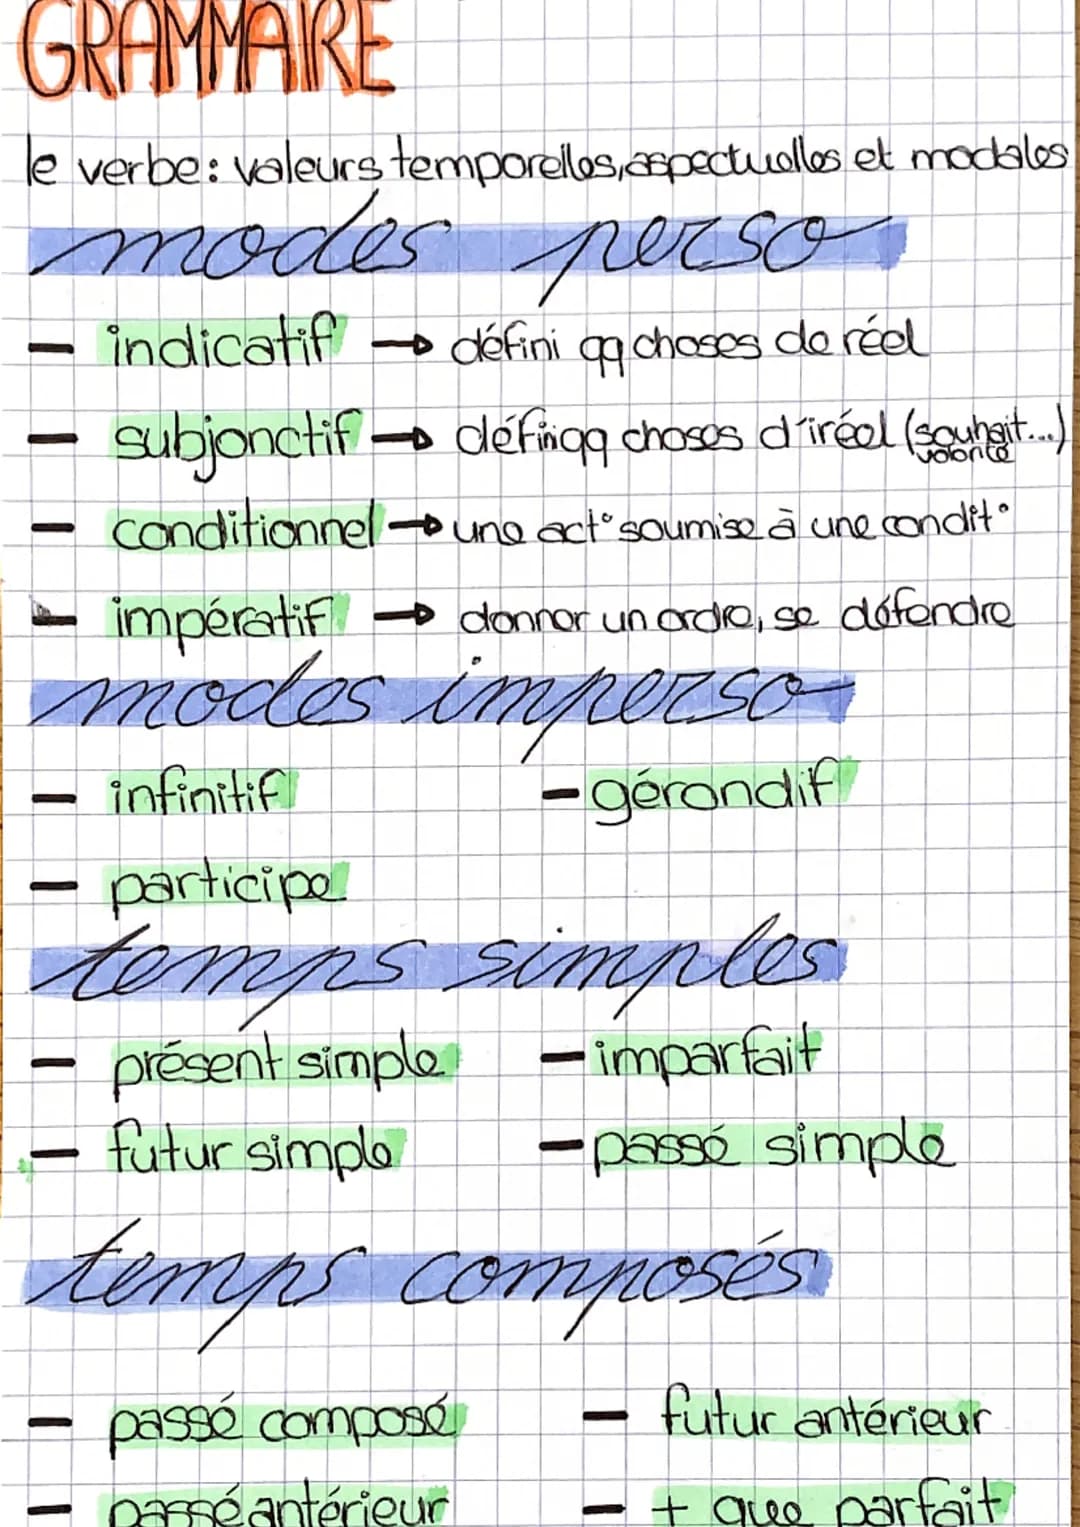 GRAMMAIRE
le verbe: valeurs temporelles, aspectuelles et modales
modes perso
- indicatif → défini qq choses de réel
- subjonctif → défini qq choses d'iréel (souhait...)
volonté
- conditionnel → une act° soumise à une condit°
- impératif → donner un ordre, se défendre
modes imperso
- infinitif - gérondif
- participe
temps simples
- présent simple - imparfait
- futur simple - passé simple
temps composés
- passé composé - futur antérieur
- passé antérieur - + que parfait